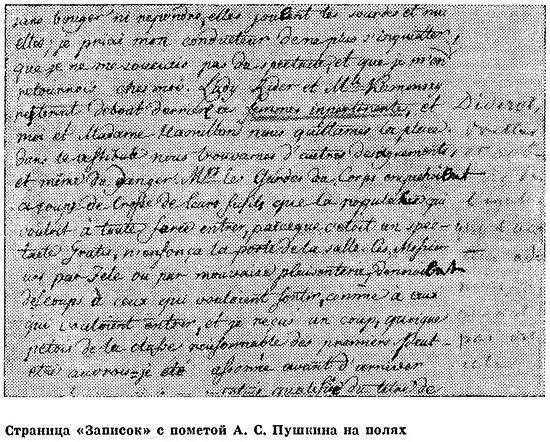 sans bouger ni repondre, elles jouoient les sourdes et mu
elles, je priai mon conducteur de ne plus s'inquieter,
que je ne me souciois pas du spectacle, et que je m'en
retournois chez moi. Lady Rider et Mde
resterent debout derriere femmes impertinente, et
moi et Madame Hamilton nous quittames la place.
dans le vestibule nous trouvames d'autres desagremens,
et même du danger. les Gardes du Corps empechoient
a coups de Crosse de leurs fusils que la populace qui
vouloit à toute force entrer, parceque c'etoit un spec-
tacle Gratis, n'enfonça la porte de la salle. Ces Messieu
urs par zele ou par mauvaise plaisanterie donnoient
des coups à ceux qui vouloient sortir, comme a ceux
qui vouloient entrer, et je reçus un coup, quoique
j'etois de la classe raisonnable des premiers peut-
etre aurois-je eté assomée avant d'arriver
du titre de
Страница «Записок» с пометой А. С. Пушкина на полях